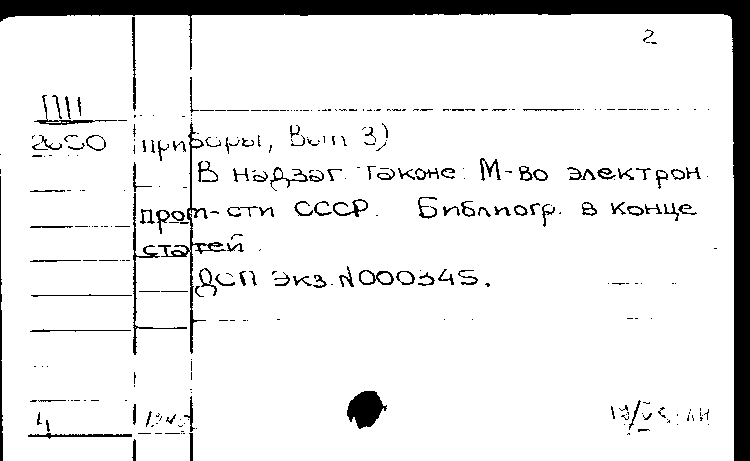 2
приборы, Вып 3)
В надзаг. также: М-во электрон.
пром-сти СССР. Библиогр. в конце
статей.
ДСП Экз. N000345.
4